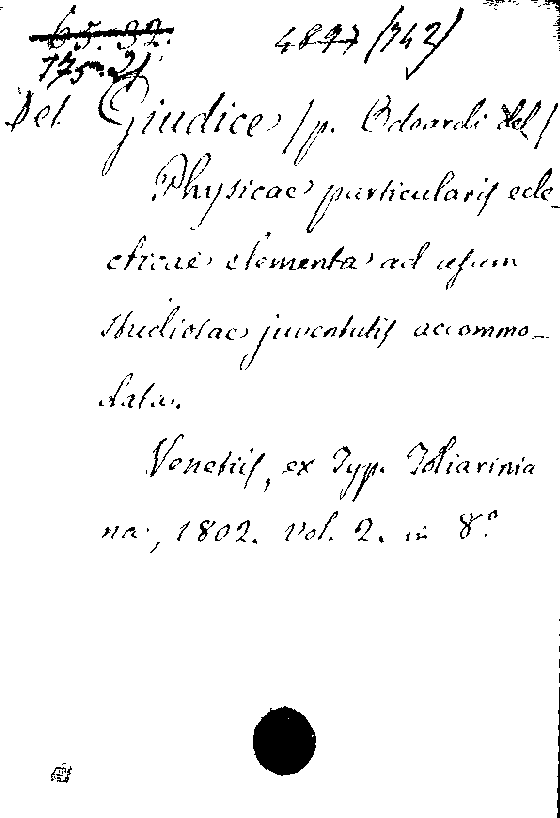 65. 32.
175. 21 4897 (742)
Del Giudice (p. Odoardi del)
Physicae particularis ecle-
cticae elementa ad usum
studiosae juventutis accommo-
data.
Venetiis, ex Typ. Zoliarinia
na, 1802. Vol. 2. in 8.°